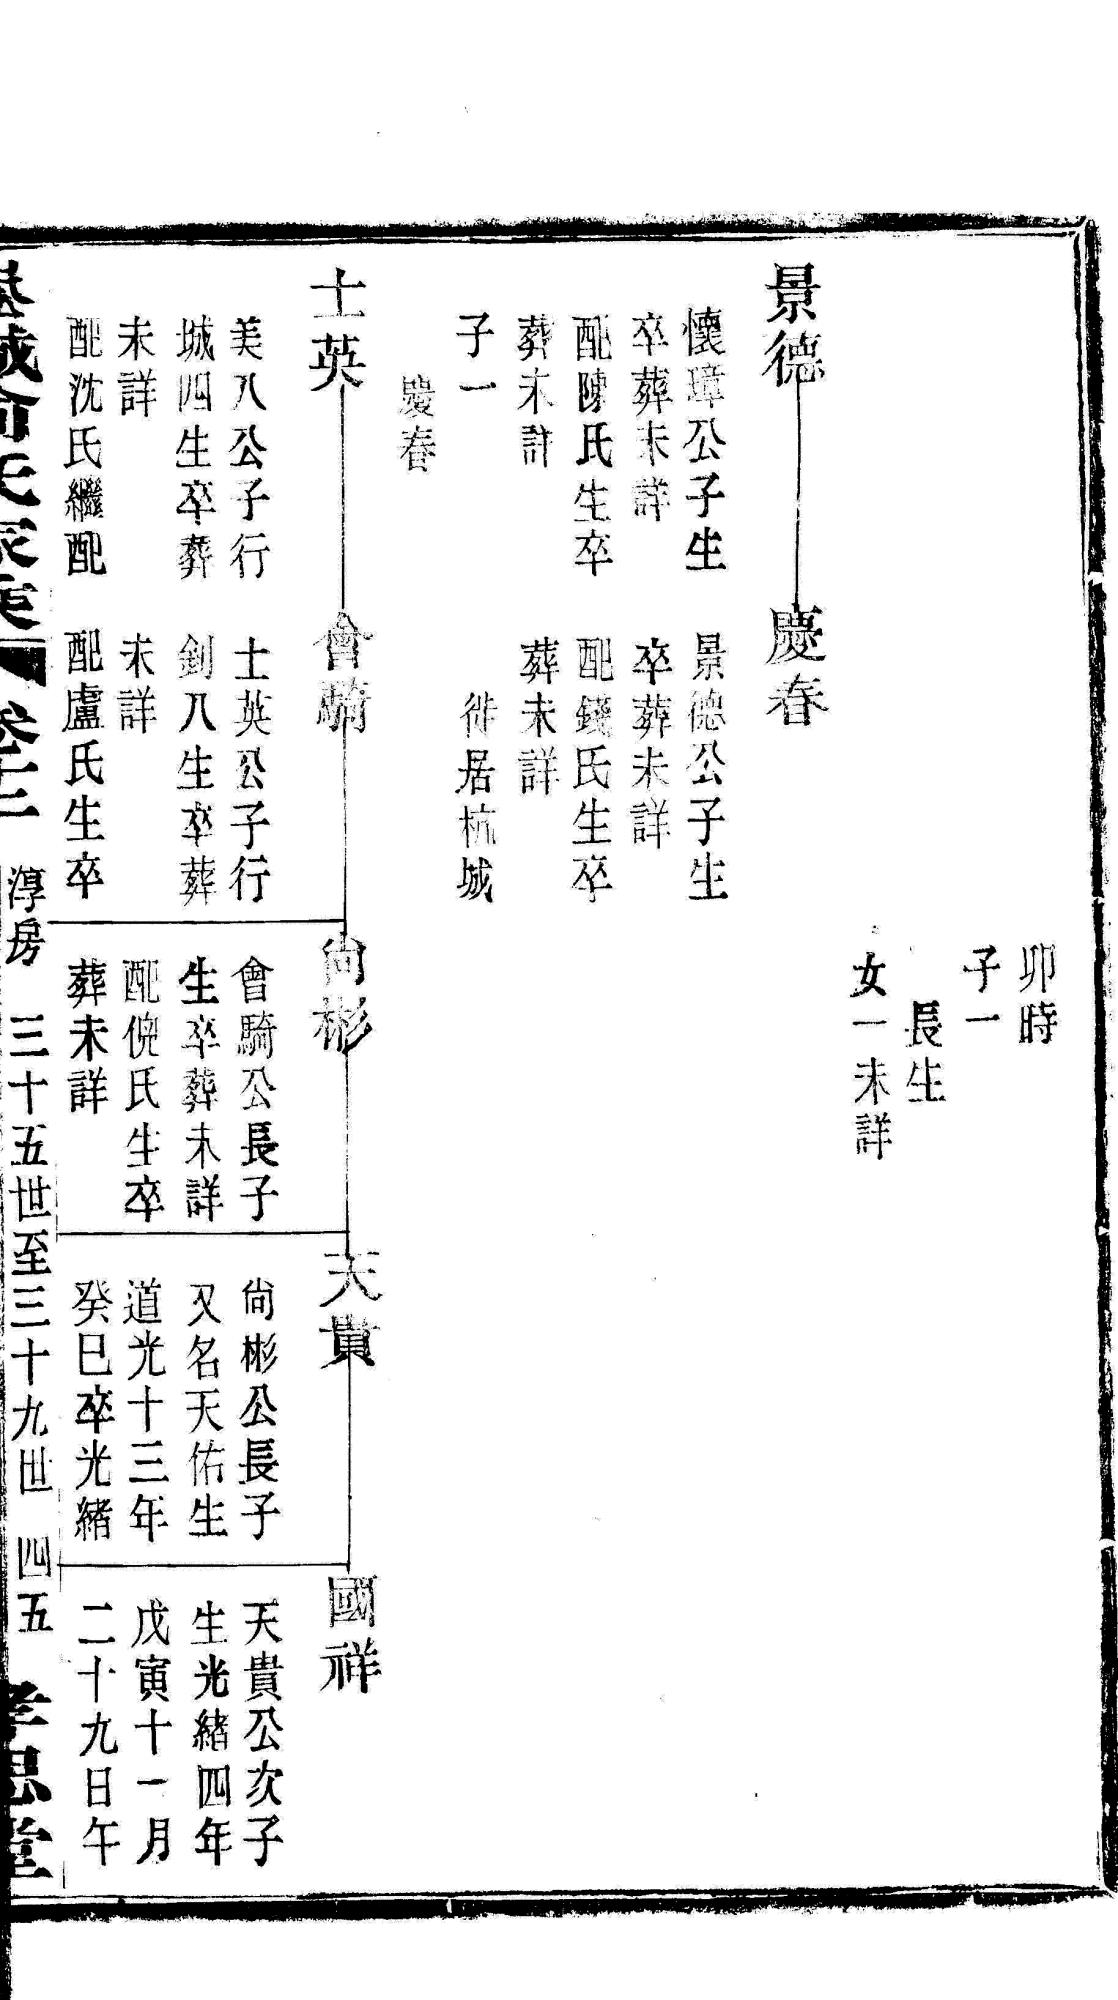 卯時
子一
長生
女一未詳
景德
懷璋公子生
卒葬未詳
配陳氏生卒
葬未詳
子一
慶春
慶春
景德公子生
卒葬未詳
配錢氏生卒
葬未詳
徙居杭城
士英
美八公子行
城四生卒葬
未詳
配沈氏繼配
會騎
士英公子行
釗八生卒葬
未詳
配盧氏生卒
尙彬
會騎公長子
生卒葬未詳
配倪氏生卒
葬未詳
天貴
尙彬公長子
又名天佑生
道光十三年
癸巳卒光緒
國祥
天貴公次子
生光緒四年
戊寅十一月
二十九日午
俞氏家乘 卷十二 淳房 三十五世至三十九世 四五 孝思堂